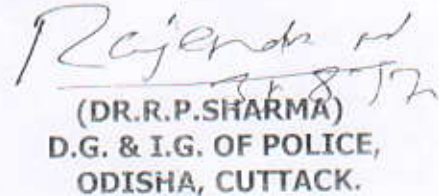 Rajendra
31.8.12
(DR.R.P.SHARMA)
D.G. & I.G. OF POLICE,
ODISHA, CUTTACK.